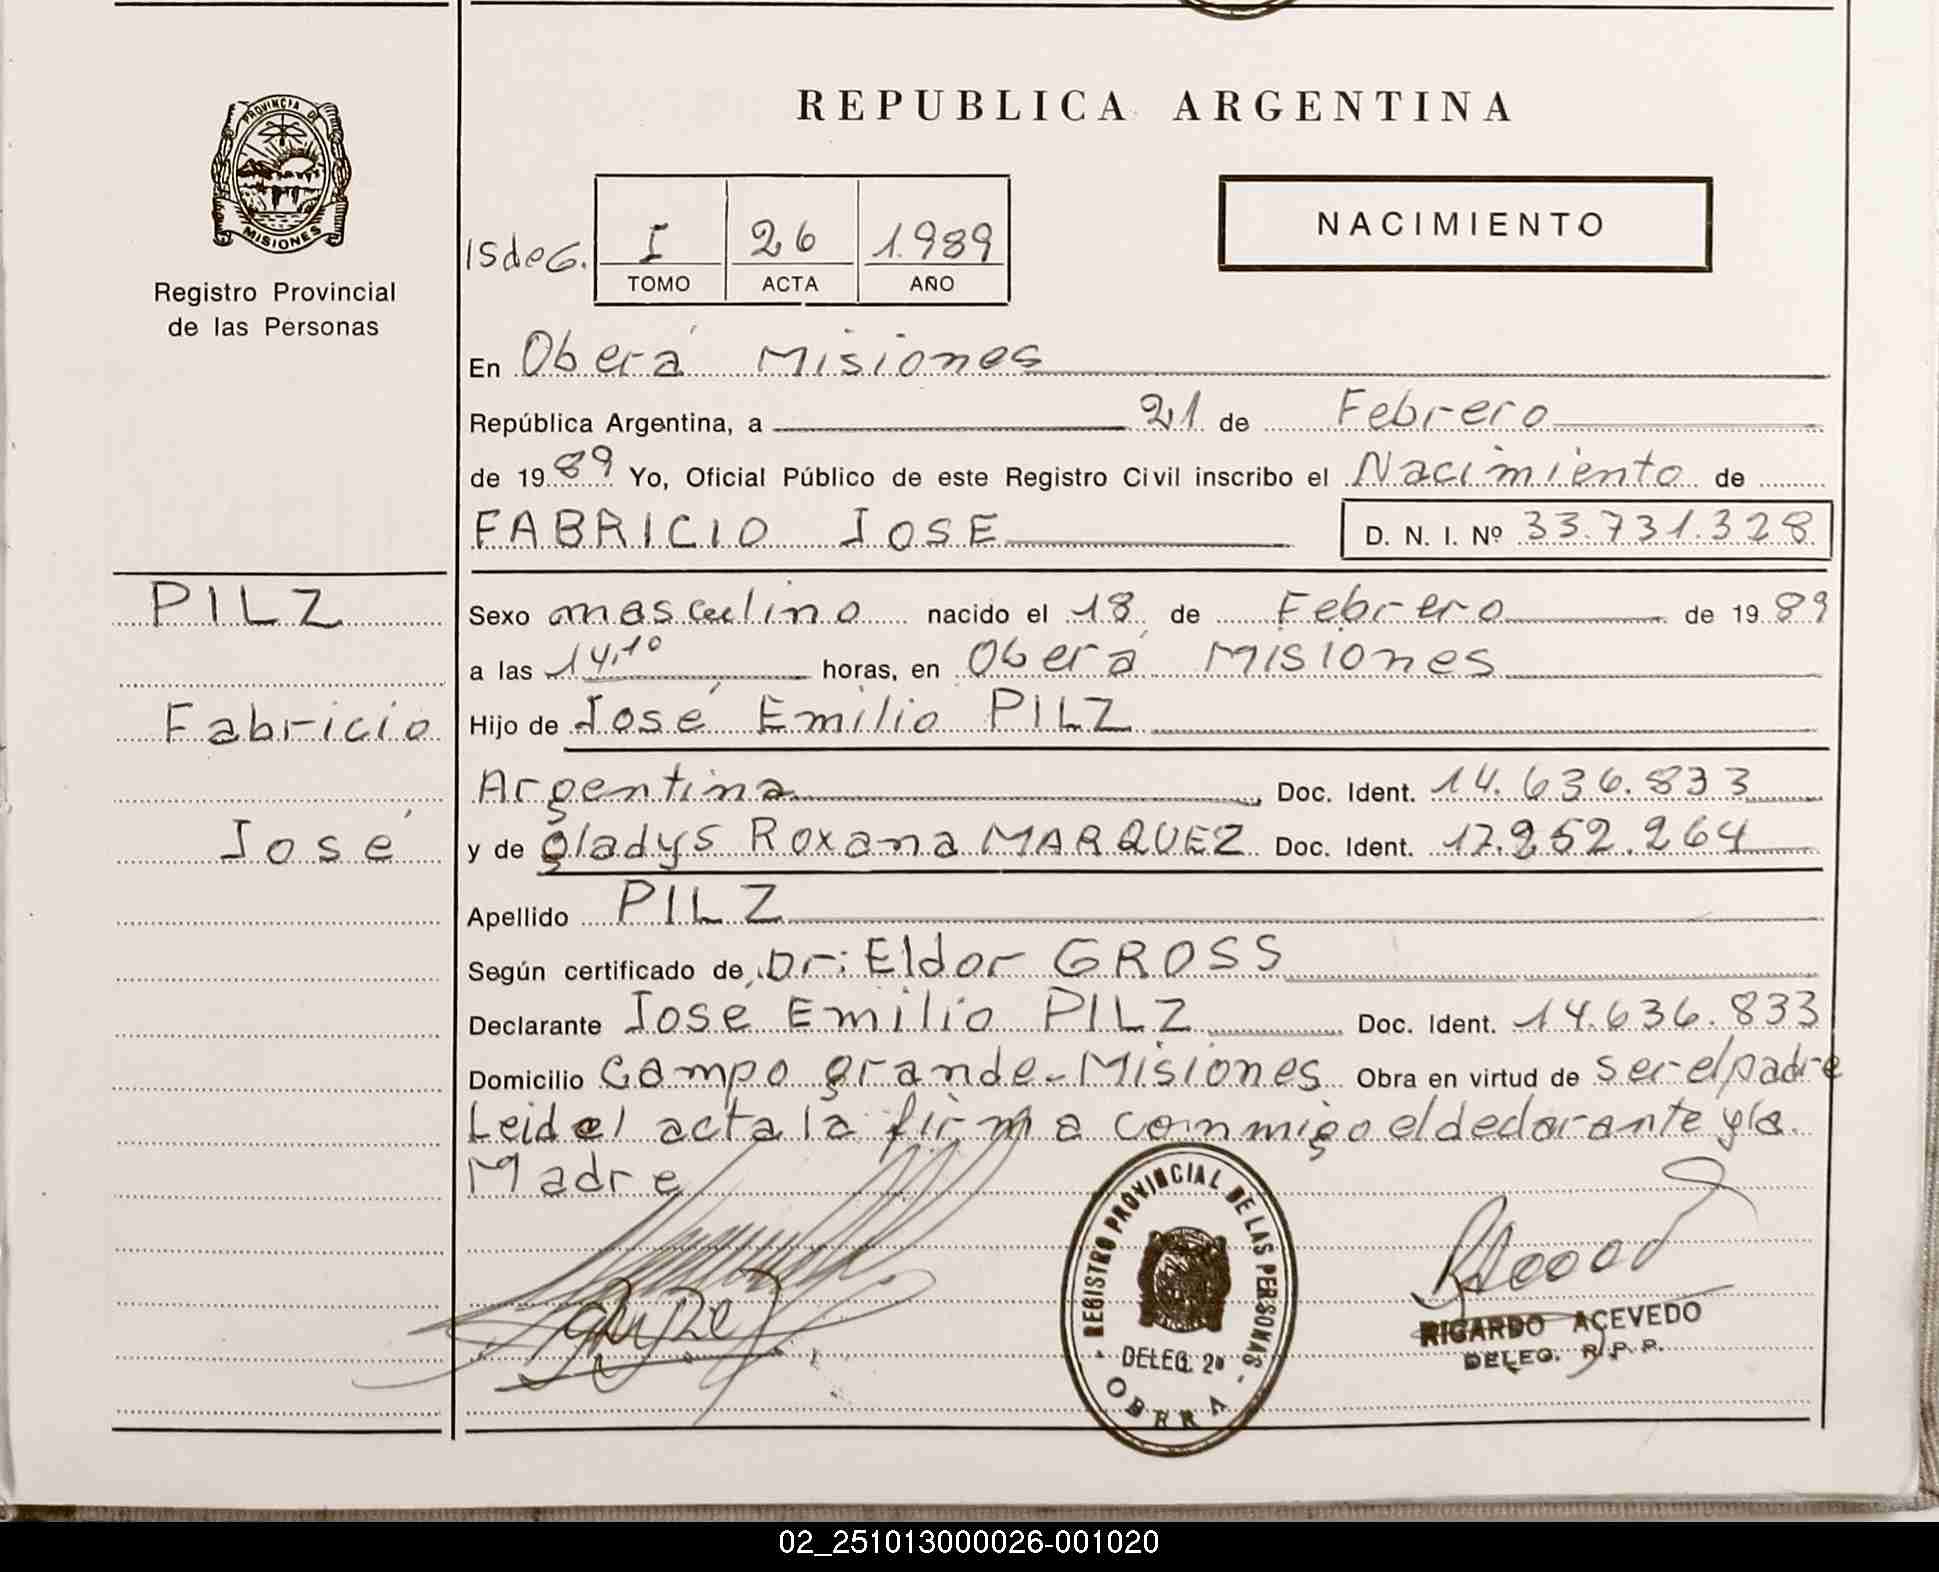 REPUBLICA ARGENTINA
PROVINCIA DE
MISIONES
Registro Provincial
de las Personas
NACIMIENTO
ISdeG. I 26 1.989
TOMO ACTA AÑO
En Oberá Misiones
República Argentina, a 21 de Febrero
de 1989 Yo, Oficial Público de este Registro Civil inscribo el Nacimiento de
FABRICIO JOSE D. N. I. Nº 33.731.328
PILZ
Fabricio
José
Sexo masculino nacido el 18 de Febrero de 1989
a las 14,10 horas, en Oberá Misiones
Hijo de José Emilio PILZ
Argentina Doc. Ident. 14.636.833
y de gladys Roxana MARQUEZ Doc. Ident. 17.952.264
Apellido PILZ
Según certificado de Dr: Eldor GROSS
Declarante José Emilio PILZ Doc. Ident. 14.636.833
Domicilio Campo grande-Misiones Obra en virtud de ser el padre
Leida el acta la firma conmigo el declarante y la
Madre
REGISTRO PROVINCIAL DE LAS PERSONAS
DELEG. 2ª
OBERA
RICARDO ACEVEDO
DELEG. R.P.P.
02_251013000026-001020